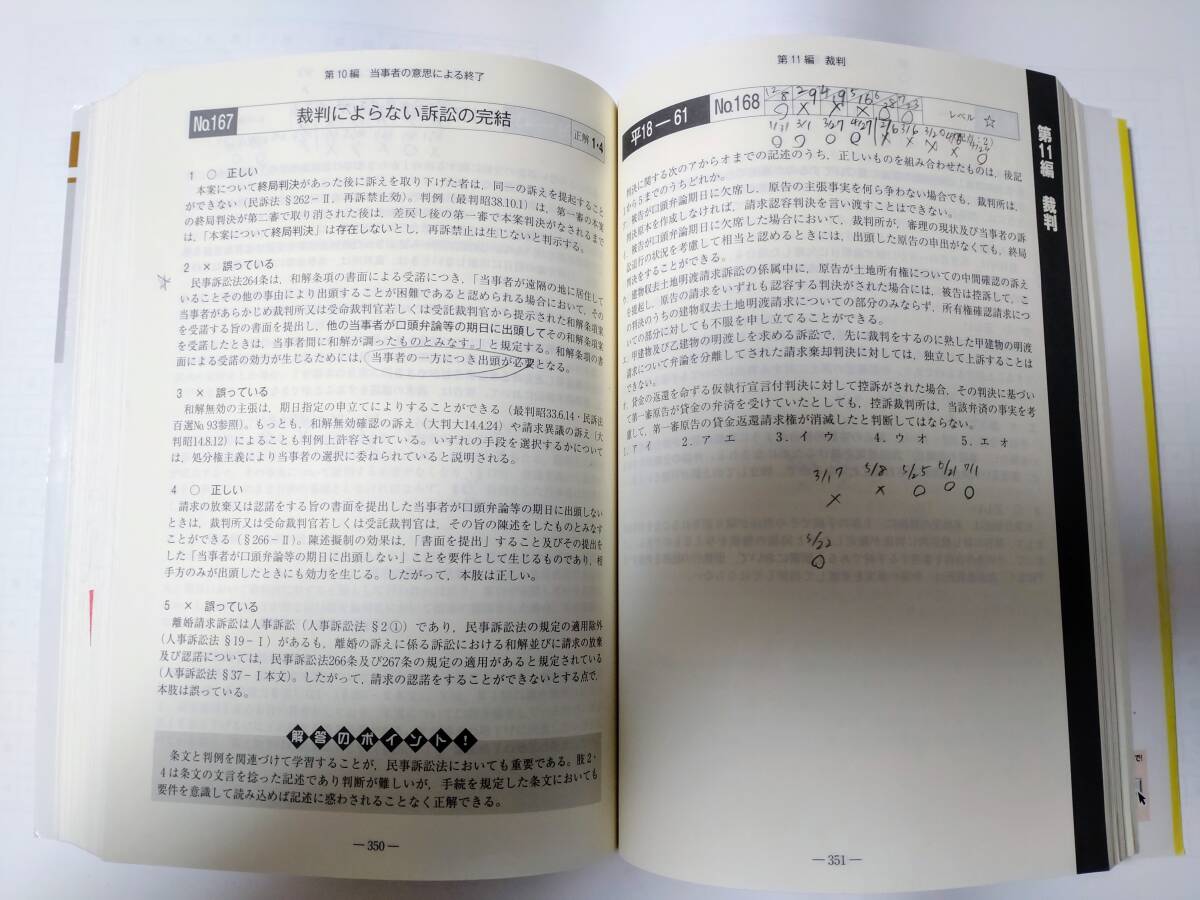 第10編 当事者の意思による終了
No.167 裁判によらない訴訟の完結 正解 1・4
1 ○ 正しい
本案について終局判決があった後に訴えを取り下げた者は，同一の訴えを提起すること
ができない（民訴法 §262－Ⅱ，再訴禁止効）。判例（最判昭38.10.1）は，第一審の本案
の終局判決が第二審で取り消された後は，差戻し後の第一審で本案判決がなされるまで
は，「本案について終局判決」は存在しないとし，再訴禁止は生じないと判示する。
2 × 誤っている
民事訴訟法264条は，和解条項の書面による受諾につき，「当事者が遠隔の地に居住して
いることその他の事由により出頭することが困難であると認められる場合において，その
当事者があらかじめ裁判所又は受命裁判官若しくは受託裁判官から提示された和解条項案
を受諾する旨の書面を提出し，他の当事者が口頭弁論等の期日に出頭してその和解条項案
を受諾したときは，当事者間に和解が調ったものとみなす。」と規定する。和解条項の書
面による受諾の効力が生じるためには，当事者の一方につき出頭が必要となる。
3 × 誤っている
和解無効の主張は，期日指定の申立てによりすることができる（最判昭33.6.14・民訴法
百選No.93参照）。もっとも，和解無効確認の訴え（大判大14.4.24）や請求異議の訴え（大
判昭14.8.12）によることも判例上許容されている。いずれの手段を選択するかについて
は，処分権主義により当事者の選択に委ねられていると説明される。
4 ○ 正しい
請求の放棄又は認諾をする旨の書面を提出した当事者が口頭弁論等の期日に出頭しない
ときは，裁判所又は受命裁判官若しくは受託裁判官は，その旨の陳述をしたものとみなす
ことができる（§266－Ⅱ）。陳述擬制の効果は，「書面を提出」すること及びその提出を
した「当事者が口頭弁論等の期日に出頭しない」ことを要件として生じるものであり，相
手方のみが出頭したときにも効力を生じる。したがって，本肢は正しい。
5 × 誤っている
離婚請求訴訟は人事訴訟（人事訴訟法 §2①）であり，民事訴訟法の規定の適用除外
（人事訴訟法 §19－Ⅰ）があるも，離婚の訴えに係る訴訟における和解並びに請求の放棄
及び認諾については，民事訴訟法266条及び267条の規定の適用があると規定されている
（人事訴訟法 §37－Ⅰ本文）。したがって，請求の認諾をすることができないとする点で，
本肢は誤っている。
解答のポイント！
条文と判例を関連づけて学習することが，民事訴訟法においても重要である。肢2・
4は条文の文言を捻った記述であり判断が難しいが，手続を規定した条文においても
要件を意識して読み込めば記述に惑わされることなく正解できる。
―350―
第11編 裁判
平18－61 No.168 レベル ☆
判決に関する次のアからオまでの記述のうち，正しいものを組み合わせたものは，後記
1から5までのうちどれか。
被告が口頭弁論期日に欠席し，原告の主張事実を何ら争わない場合でも，裁判所は，
判決原本を作成しなければ，請求認容判決を言い渡すことはできない。
被告が口頭弁論期日に欠席した場合において，裁判所が，審理の現状及び当事者の訴
訟追行の状況を考慮して相当と認めるときには，出頭した原告の申出がなくても，終局
判決をすることができる。
建物収去土地明渡請求訴訟の係属中に，原告が土地所有権についての中間確認の訴え
を提起し，原告の請求をいずれも認容する判決がされた場合には，被告は控訴して，こ
の判決のうちの建物収去土地明渡請求についての部分のみならず，所有権確認請求につ
いての部分に対しても不服を申し立てることができる。
甲建物及び乙建物の明渡しを求める訴訟で，先に裁判をするのに熟した甲建物の明渡
請求について弁論を分離してされた請求棄却判決に対しては，独立して上訴することは
できない。
貸金の返還を命ずる仮執行宣言付判決に対して控訴がされた場合，その判決に基づい
て第一審原告が貸金の弁済を受けていたとしても，控訴裁判所は，当該弁済の事実を考
慮して，第一審原告の貸金返還請求権が消滅したと判断してはならない。
1．ア イ 2．ア エ 3．イ ウ 4．ウ オ 5．エ オ
3/17 5/8 5/25 6/21 7/1
× × ○ ○ ○
5/22
○
―351―
第11編 裁判